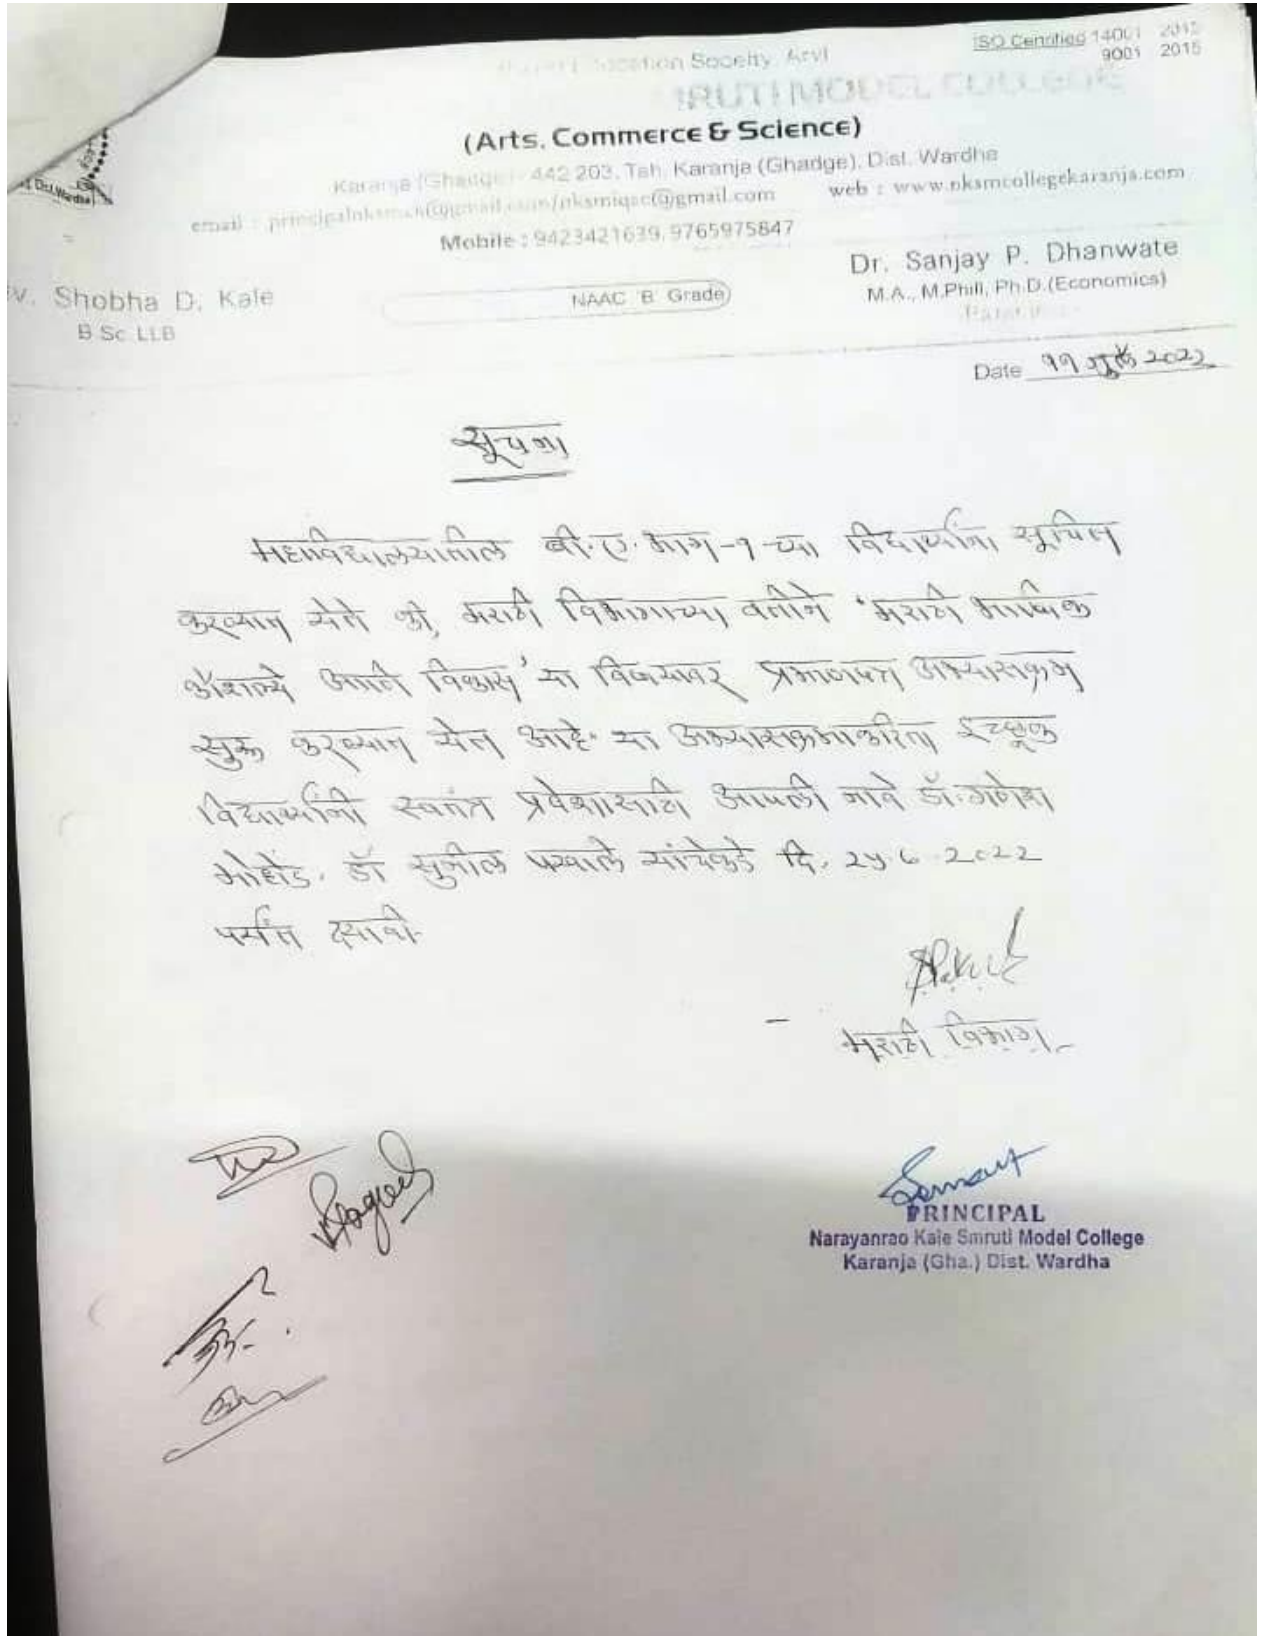 ISO Certified 14001 2015
9001 2015
Education Soceity, Arvi
SMRUTI MODEL COLLEGE
(Arts, Commerce & Science)
Karanja (Ghadge) - 442 203, Tah. Karanja (Ghadge), Dist. Wardha
web : www.nksmcollegekaranja.com
Mobile : 9423421639, 9765975847
Dist.Wardha
Shobha D. Kale
B.Sc. LLB
NAAC 'B' Grade
Dr. Sanjay P. Dhanwate
M.A., M.Phill, Ph.D.(Economics)
Date ११ जुलै 2022
सूचना
महाविद्यालयातील बी.ए. भाग-१-च्या विद्यार्थ्यांना सूचित
करण्यात येते की, मराठी विभागाच्या वतीने 'मराठी भाषिक
कौशल्ये आणि विकास' या विषयावर प्रमाणपत्र अभ्यासक्रम
सुरू करण्यात येत आहे. या अभ्यासक्रमाकरिता इच्छूक
विद्यार्थ्यांनी स्वतंत्र प्रवेशासाठी आपली नावे डॉ. गणेश
मोहोड, डॉ सुनील पखाले यांचेकडे दि. 2५.७.2०22
पर्यंत द्यावी.
मराठी विभाग
PRINCIPAL
Narayanrao Kale Smruti Model College
Karanja (Gha.) Dist. Wardha